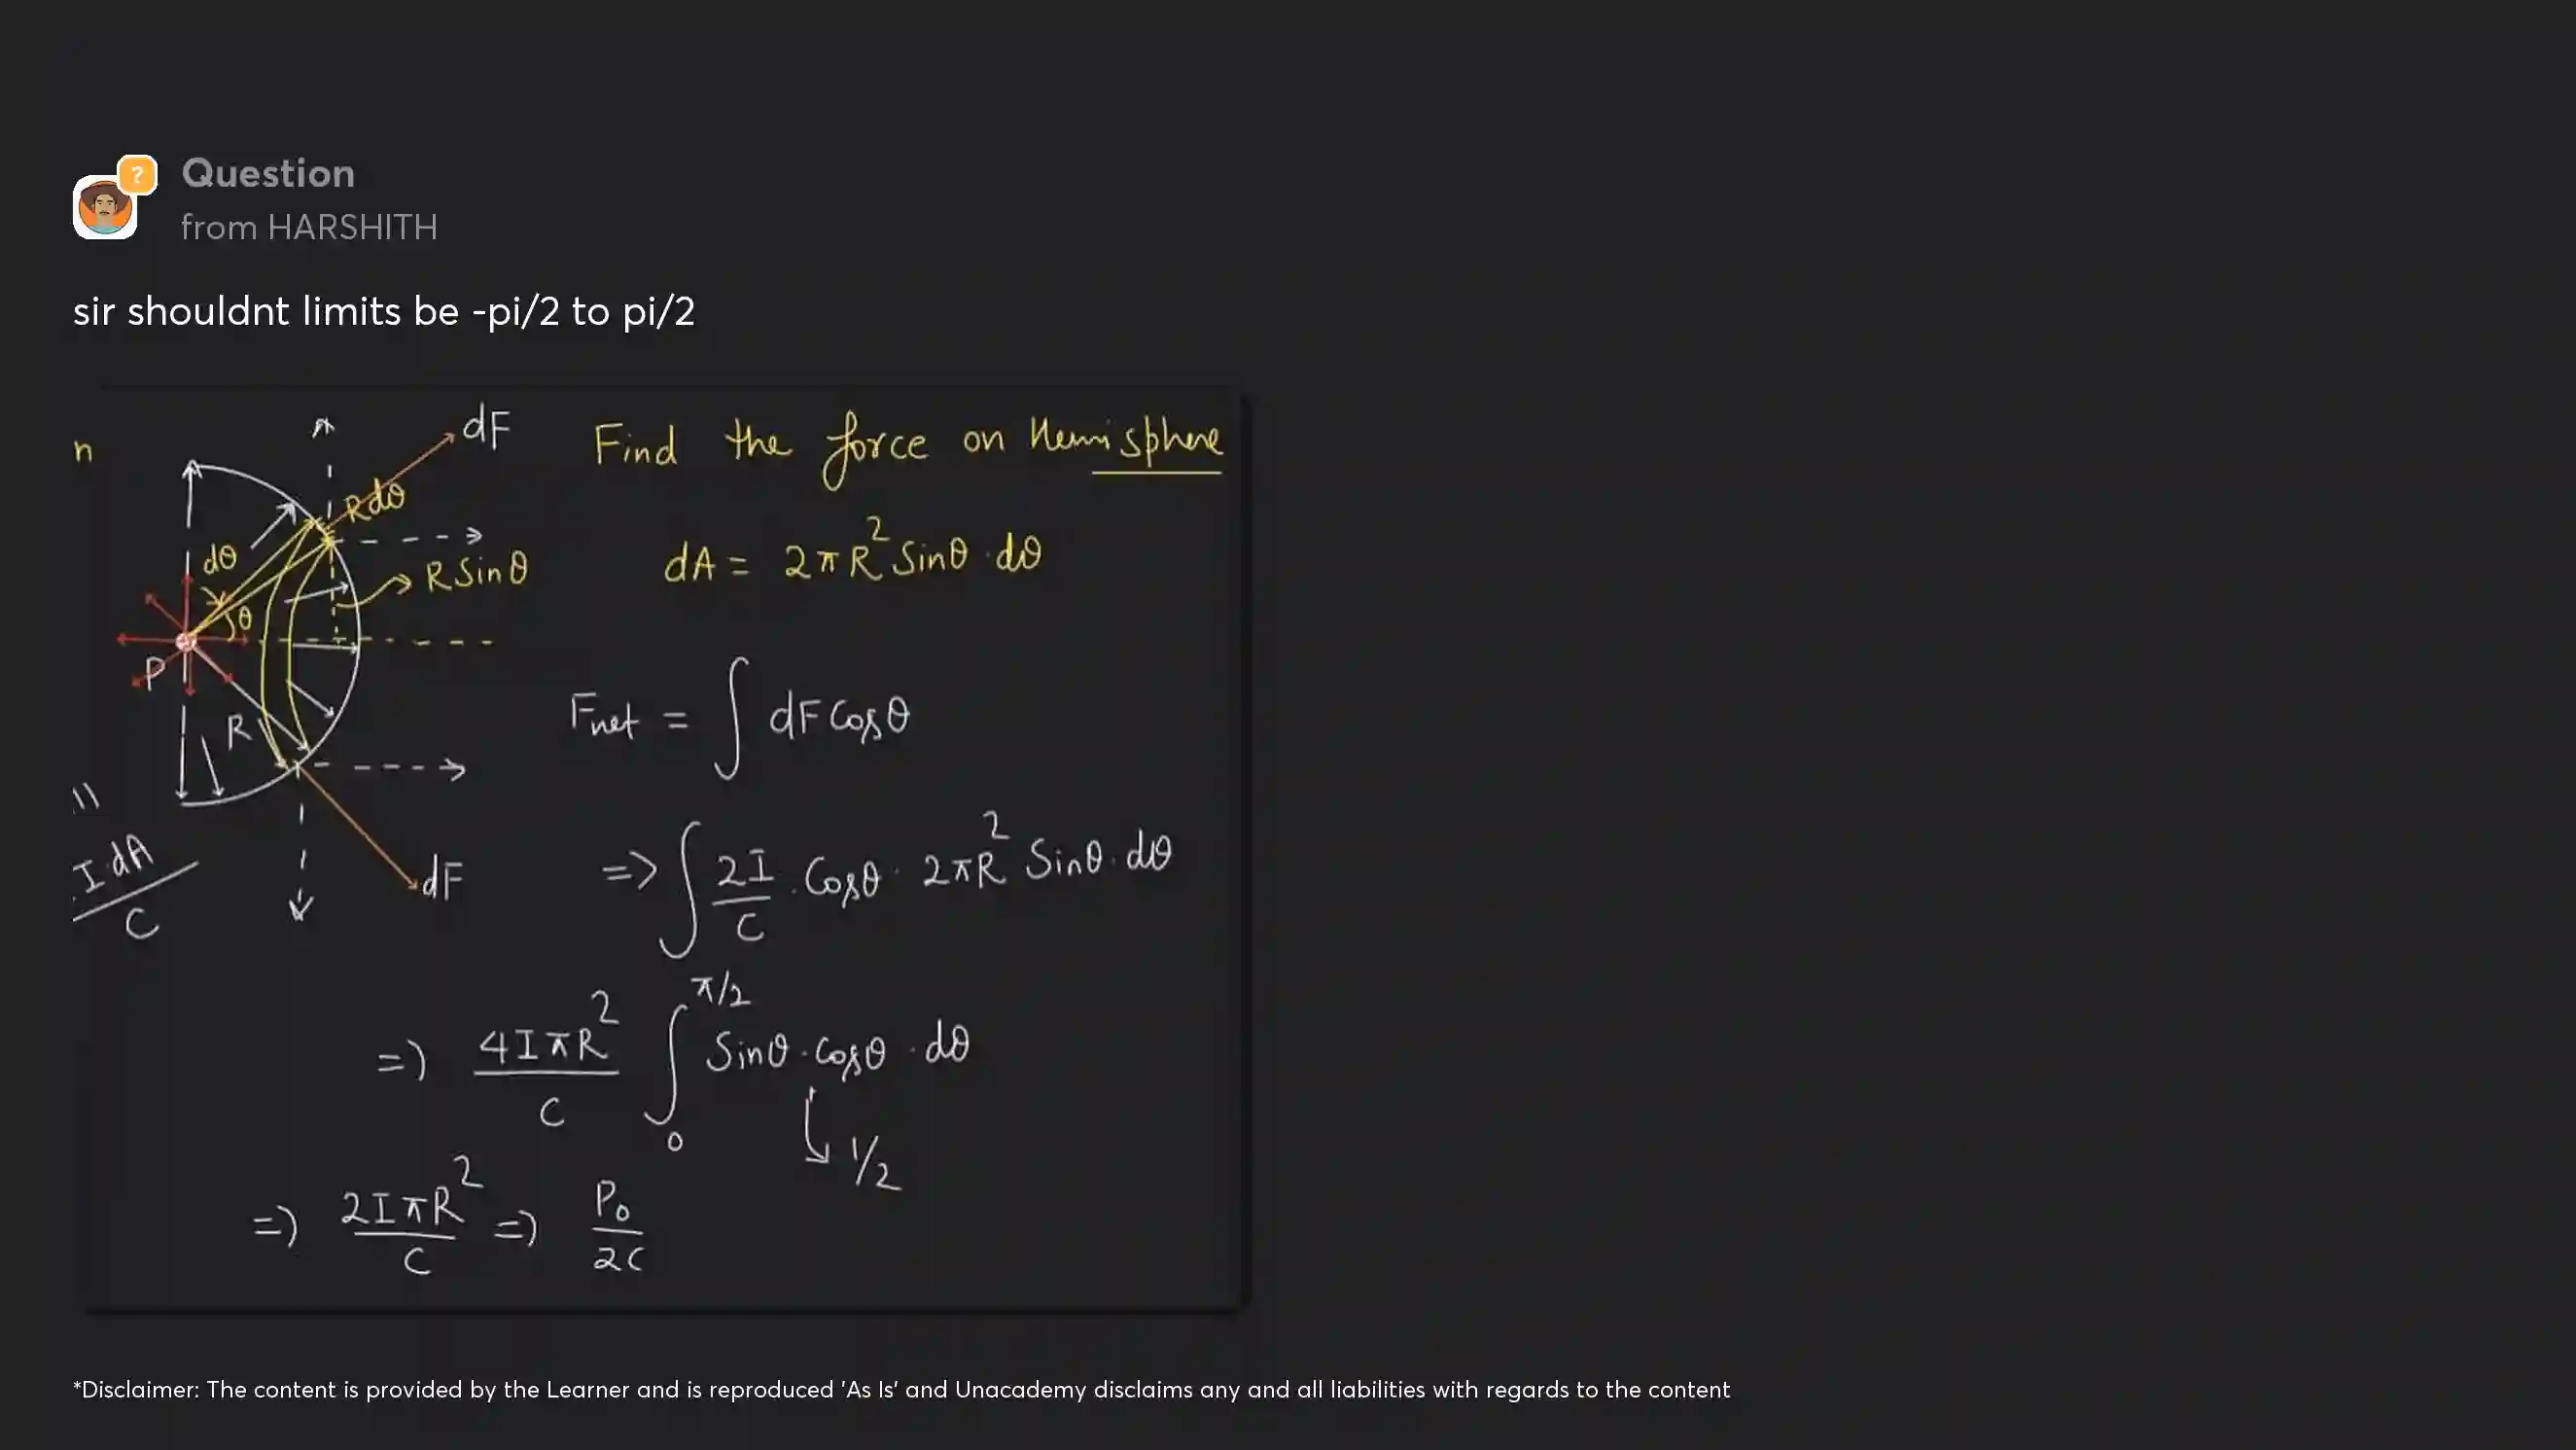 ?
Question
from HARSHITH
sir shouldnt limits be -pi/2 to pi/2
n
dF
Find the force on Hemisphere
Rdθ
dθ
RSinθ
dA = 2πR² Sinθ · dθ
θ
P
R
Fnet = ∫ dF Cosθ
I·dA / C
dF
=> ∫ 2I/C · Cosθ · 2πR² Sinθ · dθ
=) 4IπR²/C ∫₀^π/2 Sinθ · Cosθ · dθ
1/2
=) 2IπR²/C =) P₀/2C
*Disclaimer: The content is provided by the Learner and is reproduced 'As Is' and Unacademy disclaims any and all liabilities with regards to the content